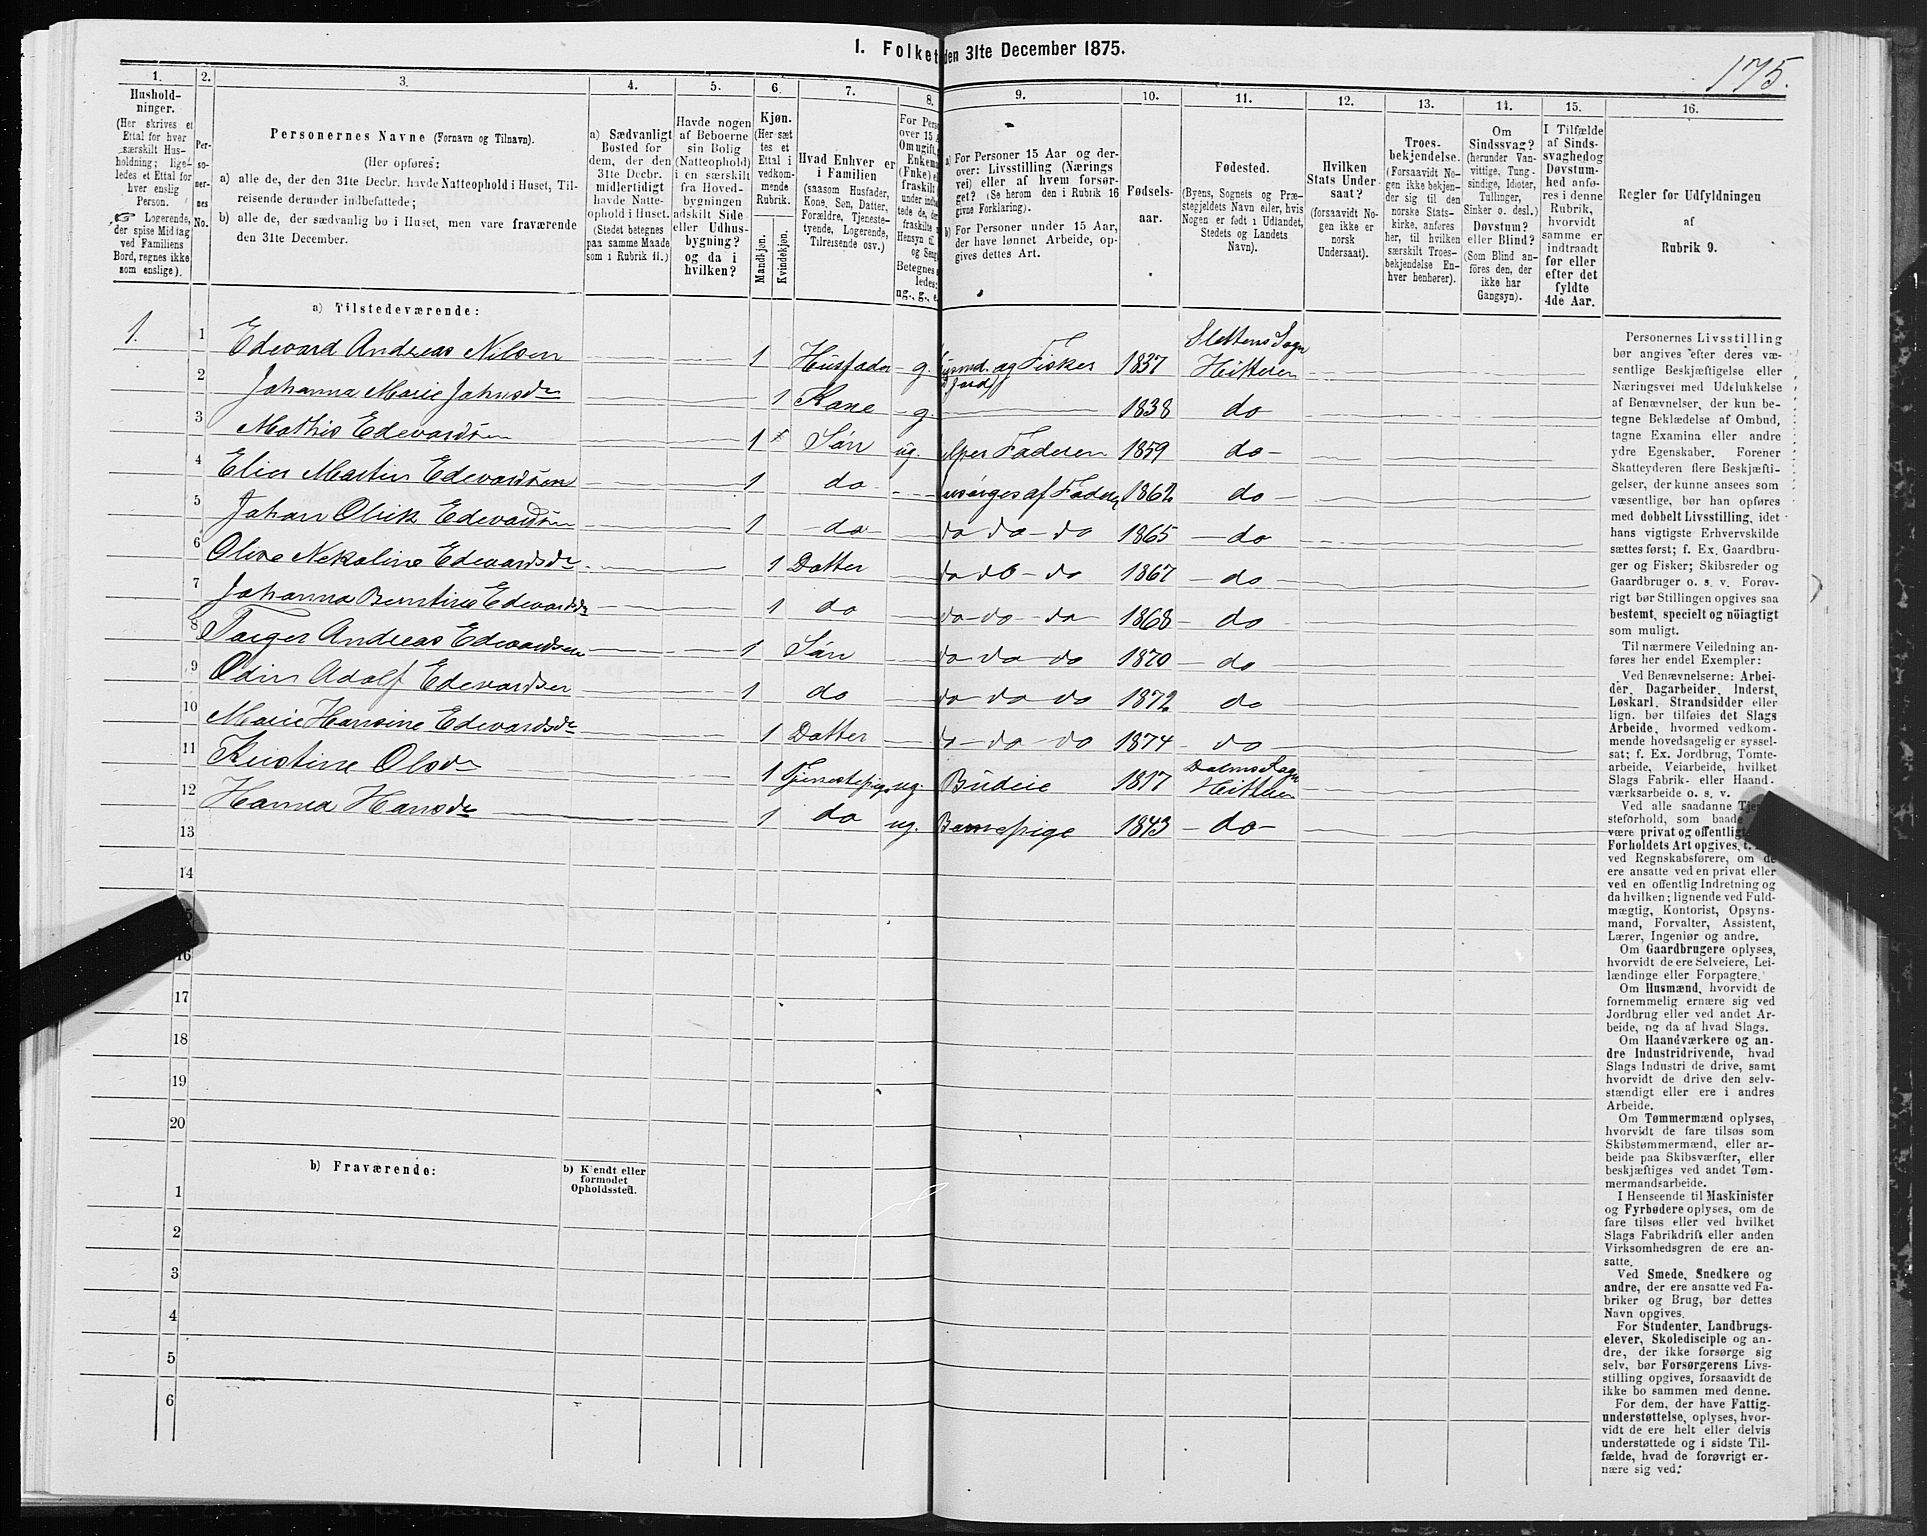 175.
I. Folket
den 31te December 1875.
1.
2.
3.
4.
5.
6.
7.
8.
9.
10.
11.
12.
13.
14.
15.
16.
Hushold-
ninger.
(Her skrives et
Ettal for hver
særskilt Hus-
holdning; lige-
ledes et Ettal for
hver enslig
Person.
☞ Logerende,
der spise Middag
ved Familiens
Bord, regnes ikke
som enslige).
Per-
so-
ner-
nes
No.
Personernes Navne (Fornavn og Tilnavn).
(Her opføres:
a) alle de, der den 31te Decbr. havde Natteophold i Huset, Til-
reisende derunder indbefattede;
b) alle de, der sædvanlig bo i Huset, men vare fraværende
den 31te December.
a) Sædvanligt
Bosted for
dem, der den
31te Decbr.
midlertidigt
havde Natte-
ophold i Huset.
(Stedet betegnes
paa samme Maade
som i Rubrik 11.)
Havde nogen
af Beboerne
sin Bolig
(Natteophold)
i en særskilt
fra Hoved-
bygningen
adskilt Side-
eller Udhus-
bygning?
og da i
hvilken?
Kjøn.
(Her sæt-
tes et
Ettal i
vedkom-
mende
Rubrik.
Mandkjøn.
Kvindekjøn.
Hvad Enhver er
i Familien
(saasom Husfader,
Kone, Søn, Datter,
Forældre, Tjeneste-
tyende, Logerende,
Tilreisende osv.)
For Perso
over 15 A
Om ugift,
Enkema
(Fnke) e
fraskilt
under indbe
tede de, de
fraskilte
Hensyn ti
og Seng
Betegnes s
ledes:
ug., g., e.
a) For Personer 15 Aar og der-
over: Livsstilling (Nærings
vei) eller af hvem forsør-
get? (Se herom den i Rubrik 16
givne Forklaring).
b) For Personer under 15 Aar,
der have lønnet Arbeide, op-
gives dettes Art.
Fødsels-
aar.
Fødested.
(Byens, Sognets og Præ-
stegjeldets Navn eller, hvis
Nogen er født i Udlandet,
Stedets og Landets
Navn).
Hvilken
Stats Under-
saat?
(forsaavidt No-
gen ikke er
norsk
Undersaat).
Troes-
bekjendelse.
(Forsaavidt No-
gen ikke bekjen-
der sig til den
norske Stats-
kirke, anføres
her, til hvilken
særskilt Troes-
bekjendelse En-
hver henhører).
Om
Sindssvag?
(herunder Van-
vittige, Tung-
sindige, Idioter,
Tullinger,
Sinker o. desl.)
Døvstum?
eller Blind?
(Som Blind an-
føres den, der
ikke har
Gangsyn).
I Tilfælde
af Sinds-
svaghed og
Døvstum-
hed anfø-
res i denne
Rubrik,
hvorvidt
samme er
indtraadt
før eller
efter det
fyldte
4de Aar.
Regler for Udfyldningen
af
Rubrik 9.
a) Tilstedeværende:
1. 1 Edevard Andreas Nilsen 1 Husfader g. og Fisker 1837 Slettens Sogn Hitteren
2 Johanna Marie Jahnsdr 1 Kone g. 1838 do
3 Mathis Edevardsen 1 Søn ug. Faderen 1859 do
4 Elias Martin Edevardsen 1 do af Faderen 1862 do
5 Johan Olrik Edevardsen 1 do do do do 1865 do
6 Oline Nekoline Edevardsdr 1 Datter do do do 1867 do
7 Johanna Berntine Edevardsdr 1 do do do do 1868 do
8 Torger Andreas Edevardsen 1 Søn do do do 1870 do
9 Odin Adolf Edevardsen 1 do do do do 1872 do
10 Marie Hansine Edevardsdr 1 Datter do do do 1874 do
11 Kristine Olsdr 1 Tjenestepige ug. Budeie 1817 Dolms Sogn Hitteren
12 Hanna Hansdr 1 do ug. Barnepige 1843 do
13
14
16
17
18
19
20
b) Fraværende:
b) Kjendt eller
formodet
Opholdssted.
1
2
3
4
5
6
Personernes Livsstilling
bør angives efter deres væ-
sentlige Beskjæftigelse eller
Næringsvei med Udelukkelse
af Benævnelser, der kun be-
tegne Beklædelse af Ombud,
tagne Examina eller andre
ydre Egenskaber. Forener
Skatteyderen flere Beskjæfti-
gelser, der kunne ansees som
væsentlige, bør han opføres
med dobbelt Livsstilling, idet
hans vigtigste Erhvervskilde
sættes først; f. Ex. Gaardbru-
ger og Fisker; Skibsreder og
Gaardbruger o. s. v. Forøv-
rigt bør Stillingen opgives saa
bestemt, specielt og nøiagtigt
som muligt.
Til nærmere Veiledning an-
føres her endel Exempler:
Ved Benævnelserne: Arbei-
der, Dagarbeider, Inderst,
Løskarl, Strandsidder eller
lign. bør tilføies det Slags
Arbeide, hvormed vedkom-
mende hovedsagelig er syssel-
sat; f. Ex. Jordbrug, Tomte-
arbeide, Veiarbeide, hvilket
Slags Fabrik- eller Haand-
værksarbeide o. s. v.
Ved alle saadanne Tje
steforhold, som baade
være privat og offentligt,
Forholdets Art opgives, t.
ved Regnskabsførere, om de
ere ansatte ved en privat eller
ved en offentlig Indretning og
da hvilken; lignende ved Fuld-
mægtig, Kontorist, Opsyns-
mand, Forvalter, Assistent,
Lærer, Ingeniør og andre.
Om Gaardbrugere oplyses,
hvorvidt de ere Selveiere, Lei-
lændinge eller Forpagtere.
Om Husmænd, hvorvidt de
fornemmelig ernære sig ved
Jordbrug eller ved andet Ar-
beide, og da af hvad Slags.
Om Haandværkere og an-
dre Industridrivende, hvad
Slags Industri de drive, samt
hvorvidt de drive den selv-
stændigt eller ere i andres
Arbeide.
Om Tømmermænd oplyses,
hvorvidt de fare tilsøs som
Skibstømmermænd, eller ar-
beide paa Skibsværfter, eller
beskjæftiges ved andet Tøm-
mermandsarbeide.
I Henseende til Maskinister
og Fyrbødere oplyses, om de
fare tilsøs eller ved hvilket
Slags Fabrikdrift eller anden
Virksomhedsgren de ere an-
satte.
Ved Smede, Snedkere og
andre, der ere ansatte ved Fa-
briker og Brug, bør dettes
Navn opgives.
For Studenter, Landbrugs-
elever, Skoledisciple og an-
dre, der ikke forsørge sig
selv, bør Forsørgerens Livs-
stilling opgives, forsaavidt de
ikke bo sammen med denne.
For dem, der have Fattig-
understøttelse, oplyses, hvor-
vidt de ere helt eller delvis
understøttede og i sidste Til-
fælde, hvad de forøvrigt er-
nære sig ved.